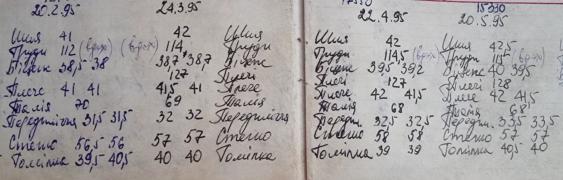 20.2.95 24.3.95
Шия 41 42 Шия
Груди 112 (вдих) (вдих) 114 Груди
Біцепс 38,5 38 38,7 38,7 Біцепс
127 Плечі
Плече 41 41 41,5 41 Плече
Талія 70 69 Талія
Передпліччя 31,5 31,5 32 32 Передпліччя
Стегно 56,5 56 57 57 Стегно
Гомілка 39,5 40,5 40 40 Гомілка
15330
22.4.95 20.5.95
Шия 42 Шия 42,5
Груди 114,5 (вдих) Груди 115
Біцепс 39,5 39,2 Біцепс 40 39,5
Плечі 127 Плечі 128
Плече 42 41,5 Плече 42 41,5
Талія 68 Талія 68
Передпл. 32,5 32,5 Передпл. 33,5 33,5
Стегно 58 58 Стегно 57 57
Гомілка 39 39 Гомілка 40,5 40